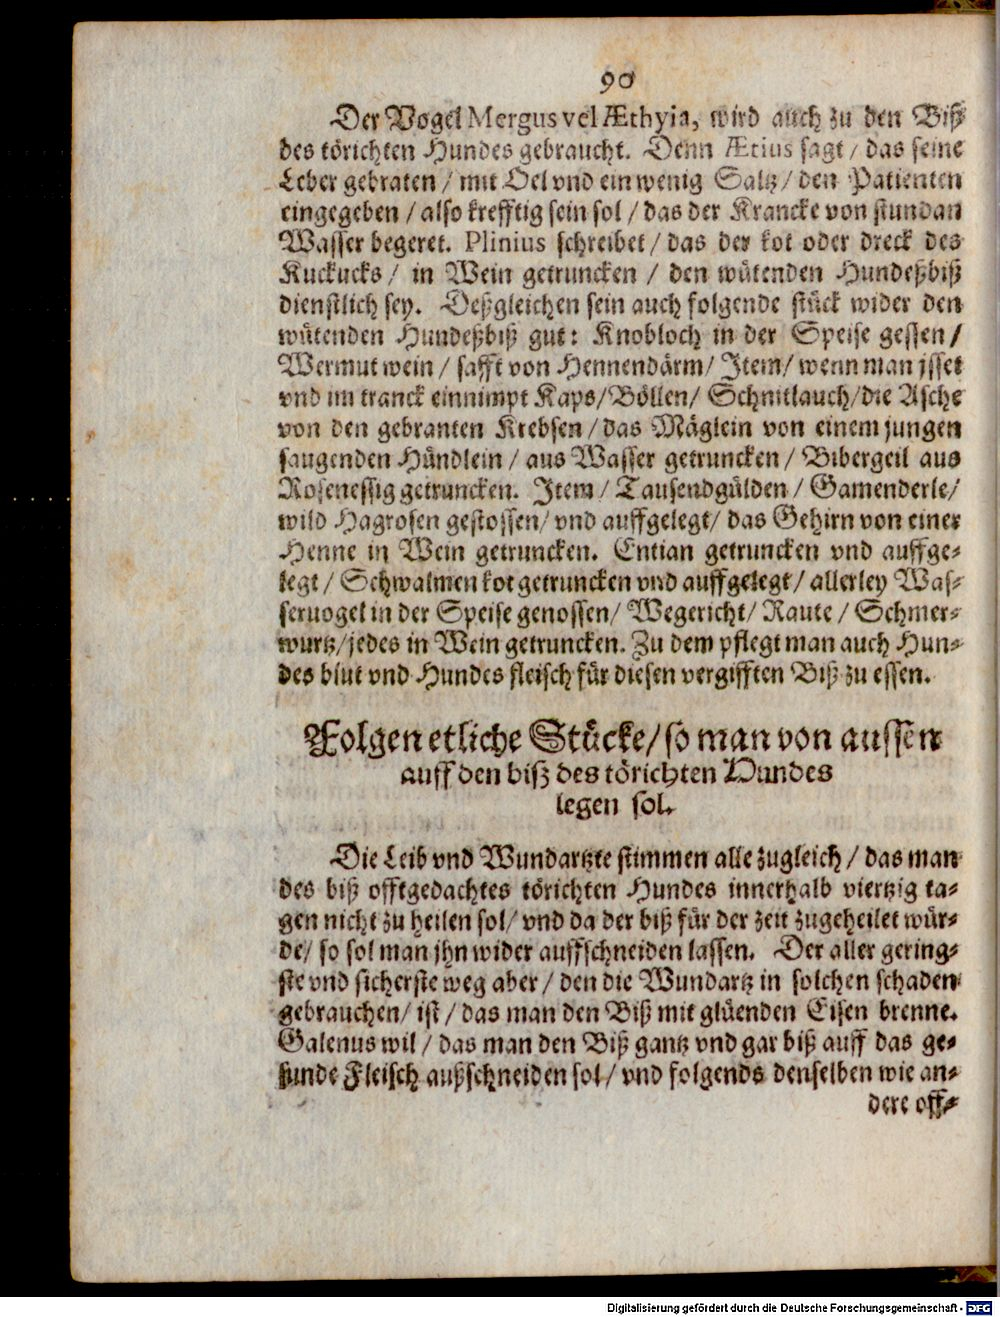 90
Der Vogel Mergus vel Æthyia, wird auch zu den Biß
des törichten Hundes gebraucht. Denn Ætius sagt / das seine
Leber gebraten / mit Oel vnd ein wenig Saltz / den Patienten
eingegeben / also krefftig sein sol / das der Krancke von stundan
Wasser begeret. Plinius schreibet / das der kot oder dreck des
Kuckucks / in Wein getruncken / den wütenden Hundeßbiß
dienstlich sey. Deßgleichen sein auch folgende stück wider den
wütenden Hundeßbiß gut: Knobloch in der Speise gessen /
Wermut wein / safft von Hennendärm / Item / wenn man isset
vnd im tranck einnimpt Kaps / Böllen / Schnitlauch / die Asche
von den gebranten Krebsen / das Mäglein von einem jungen
saugenden Hündlein / aus Wasser getruncken / Bibergeil aus
Rosenessig getruncken. Item / Tausendgülden / Gamenderle /
wild Hagrosen gestossen / vnd auffgelegt / das Gehirn von einer
Henne in Wein getruncken. Entian getruncken vnd auffge-
legt / Schwalmen kot getruncken vnd auffgelegt / allerley Was-
seruogel in der Speise genossen / Wegericht / Raute / Schmer-
wurtz / jedes in Wein getruncken. Zu dem pflegt man auch Hun-
des blut vnd Hundes fleisch für diesen vergifften Biß zu essen.
Folgen etliche Stücke / so man von aussen
auff den biß des törichten Hundes
legen sol.
Die Leib vnd Wundartzte stimmen alle zugleich / das man
des biß offtgedachtes törichten Hundes innerhalb viertzig ta-
gen nicht zu heilen sol / vnd da der biß für der zeit zugeheilet wür-
de / so sol man jhn wider auffschneiden lassen. Der aller gering-
ste vnd sicherste weg aber / den die Wundartz in solchen schaden
gebrauchen / ist / das man den Biß mit glüenden Eisen brenne.
Galenus wil / das man den Biß gantz vnd gar biß auff das ge-
sunde Fleisch außschneiden sol / vnd folgends denselben wie an-
dere off-
Digitalisierung gefördert durch die Deutsche Forschungsgemeinschaft - DFG